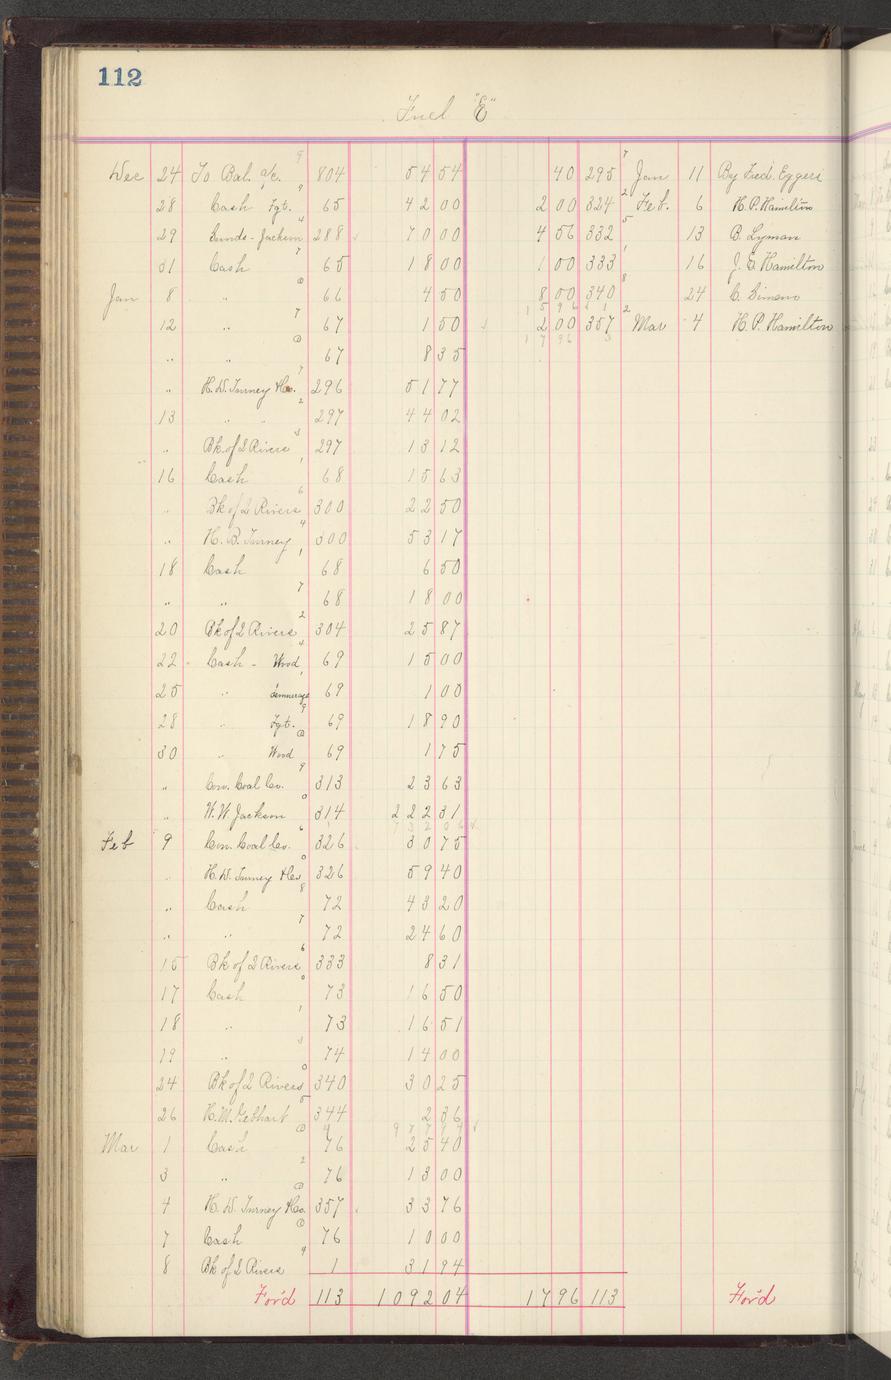 112
Fuel "E"
Dec 24 To Bal. a/c. 9 804 54 54 40 295 7 Jan 11 By Fred. Eggers
28 Cash Fgt. 9 65 42 00 2 00 324 2 Feb. 6 H. P. Hamilton
29 Sunds - Jackson 4 288 70 00 4 56 332 5 13 B. Lyman
31 Cash 7 65 18 00 1 00 333 1 16 J. E. Hamilton
Jan 8 " 66 4 50 8 00 340 8 24 C. Simeno
12 " 7 67 1 50 2 00 357 2 Mar 4 H. P. Hamilton
" " 67 8 35 17 96
" H. W. Turney & Co. 7 296 51 77
13 " " 2 297 44 02
" Bk. of 2 Rivers 297 13 12
16 Cash 1 68 15 63
" Bk of 2 Rivers 6 300 22 50
" H. B. Turney 4 300 53 17
18 Cash 1 68 6 50
" " 7 68 18 00
20 Bk of 2 Rivers 2 304 25 87
22 Cash - Wood 4 69 15 00
25 " demurage 1 69 1 00
28 " Fgt. 9 69 18 90
30 " Wood 69 1 75
" Con. Coal Co. 9 313 23 63
" W. W. Jackson 0 314 222 31
Feb 9 Con. Coal Co. 6 326 30 75
" H. W. Turney & Co 0 326 59 40
" Cash 8 72 43 20
" " 7 72 24 60
15 Bk of 2 Rivers 6 333 8 31
17 Cash 0 73 16 50
18 " 1 73 16 51
19 " 74 14 00
24 Bk of 2 Rivers 0 340 30 25
26 H. M. Gebhart 5 344 2 36
Mar 1 Cash 76 25 40
3 " 2 76 13 00
4 H. W. Turney & Co. 357 33 76
7 Cash 76 10 00
8 Bk of 2 Rivers 9 1 31 94
For'd 113 1092 04 17 96 113 For'd